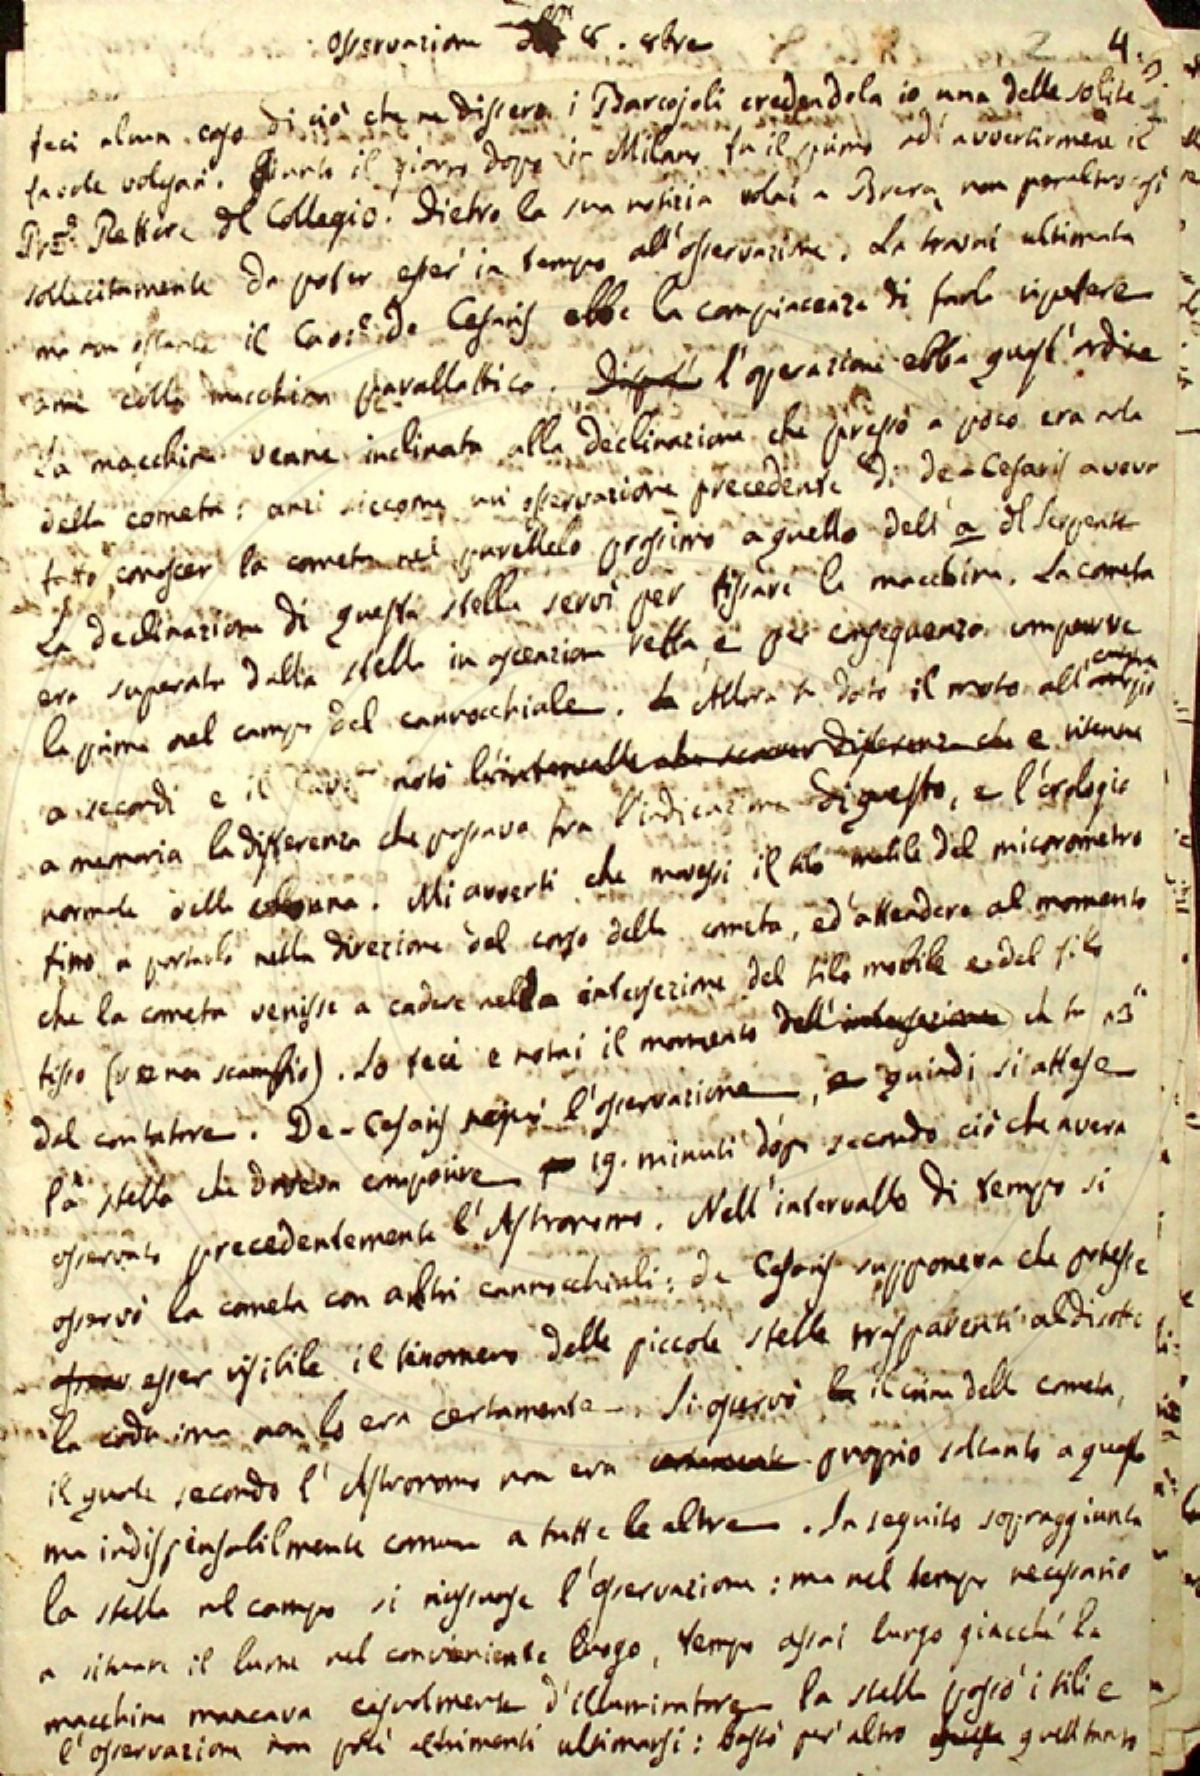 Osservazione dell' 8. 8bre
4.
feci alcun caso di ciò che ne dissero i Barcajoli credendola io una delle solite
favole volgari. Giunto il giorno dopo in Milano fu il primo ad avvertirmene il
Rettore del Collegio. Dietro la sua notizia volai a Brera, non peraltro sì
sollecitamente da poter esser in tempo all'osservazione. La trovai ultimata
ma non ostante il Cav. De Cesaris ebbe la compiacenza di farla ripetere
colla macchina parallattica. l'operazione ebbe quest'ordine
La macchina venne inclinata alla declinazione che presso a poco era nota
della cometa: anzi siccome un' osservazione precedente di de-Cesaris aveva
fatto conoscer la cometa nel parellelo prossimo a quello dell' a del Serpente
La declinazione di questa stella servì per fissare la macchina. La cometa
era superata dalla stella in ascenzione retta, e per conseguenza comparve
la prima nel campo del cannocchiale. Allora fu dato il moto all'
a secondi e il Cav. notò l'intervallo differenza che e ritenne
a memoria la differenza che passava fra l'indicazione di questo, e l'orologio
normale della colonna. Mi avvertì che movessi il filo mobile del micrometro
fino a portarlo nella direzione del corso della cometa, ed attendere al momento
che la cometa venisse a cadere nella intersezione del filo mobile e del filo
fisso. Lo feci e notai il momento dell'intersezione
dal contatore. De-Cesaris l'osservazione, e quindi si attese
la stella che doveva comparire 19. minuti dopo secondo ciò che aveva
osservato precedentemente l'Astronomo. Nell'intervallo di tempo si
osservò la cometa con altri cannocchiali: de Cesaris supponeva che potesse
esser visibile il fenomeno delle piccole stelle trasparenti al disotto
la coda: ma non lo era certamente. Si osservò la il crine della cometa,
il quale secondo l'Astronomo non era proprio soltanto a questa
ma indispensabilmente comune a tutte le altre. In seguito sopraggiunta
la stella nel campo si riassunse l'osservazione: ma nel tempo necessario
a situare il lume nel conveniente luogo, tempo assai lungo giacchè la
macchina mancava casualmente d'illuminatore la stella passò i fili e
l'osservazione non potè altrimenti ultimarsi: bastò per altro